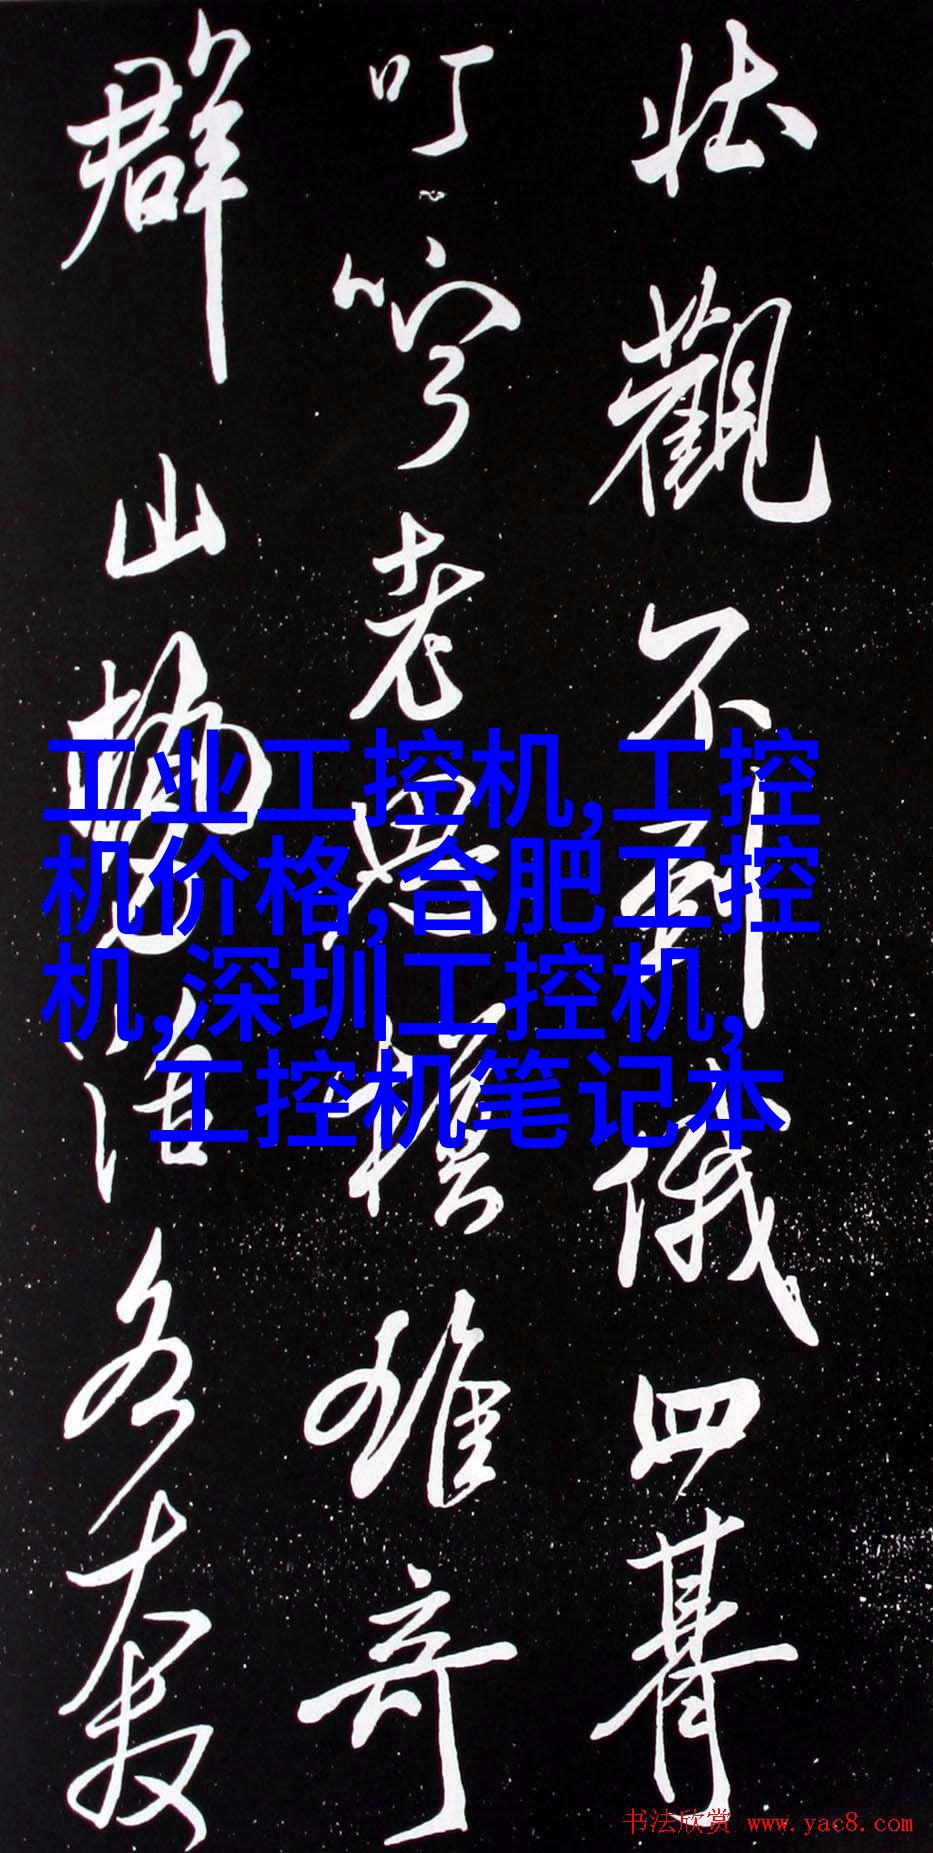 壯觀不到俄四暮
叮嚀老雄奇
群山勢
工业工控机,工控
机价格,合肥工控
机,深圳工控机,
工控机笔记本
书法欣赏 www.yac8.com